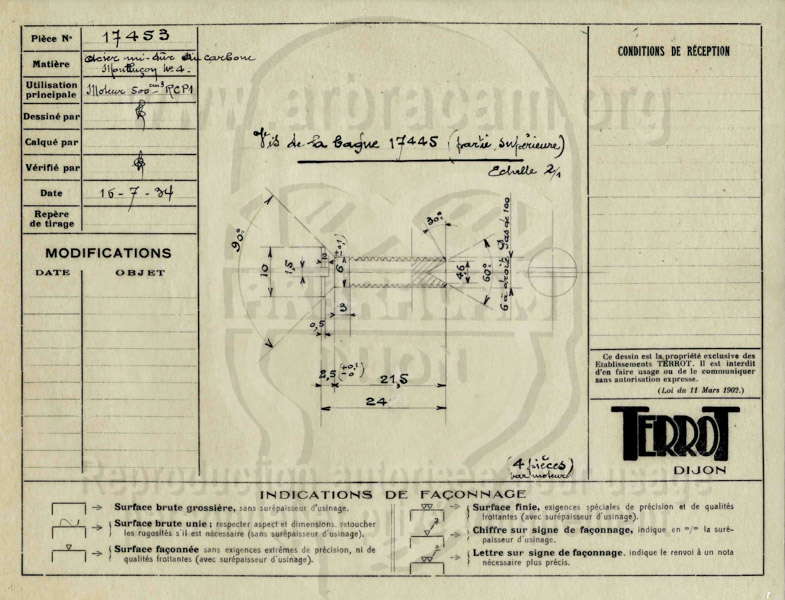 Pièce N° 17453
Matière acier mi-dur au carbone
Montluçon N° 4.
Utilisation principale Moteur 500 cm³ RCP1
Dessiné par
Calqué par
Vérifié par
Date 16-7-34
Repère de tirage
MODIFICATIONS
DATE OBJET
www.arbracam.org
Vis de la bague 17445 (partie supérieure)
Echelle 2/1
90°
10
1,5
6
30°
46
60°
6 à droite Pas de 100
3
0,5
2,5 (+0,1 -0)
21,5
24
(4 pièces)
par moteur
DIJON
CONDITIONS DE RÉCEPTION
Ce dessin est la propriété exclusive des
Etablissements TERROT. Il est interdit
d'en faire usage ou de le communiquer
sans autorisation expresse.
(Loi du 11 Mars 1902.)
TERROT
DIJON
INDICATIONS DE FAÇONNAGE
Surface brute grossière, sans surépaisseur d'usinage.
Surface brute unie ; respecter aspect et dimensions, retoucher
les rugosités s'il est nécessaire (sans surépaisseur d'usinage).
Surface façonnée sans exigences extrêmes de précision, ni de
qualités frottantes (avec surépaisseur d'usinage).
Surface finie, exigences spéciales de précision et de qualités
frottantes (avec surépaisseur d'usinage).
Chiffre sur signe de façonnage, indique en m/m la suré-
paisseur d'usinage.
Lettre sur signe de façonnage, indique le renvoi à un nota
nécessaire plus précis.